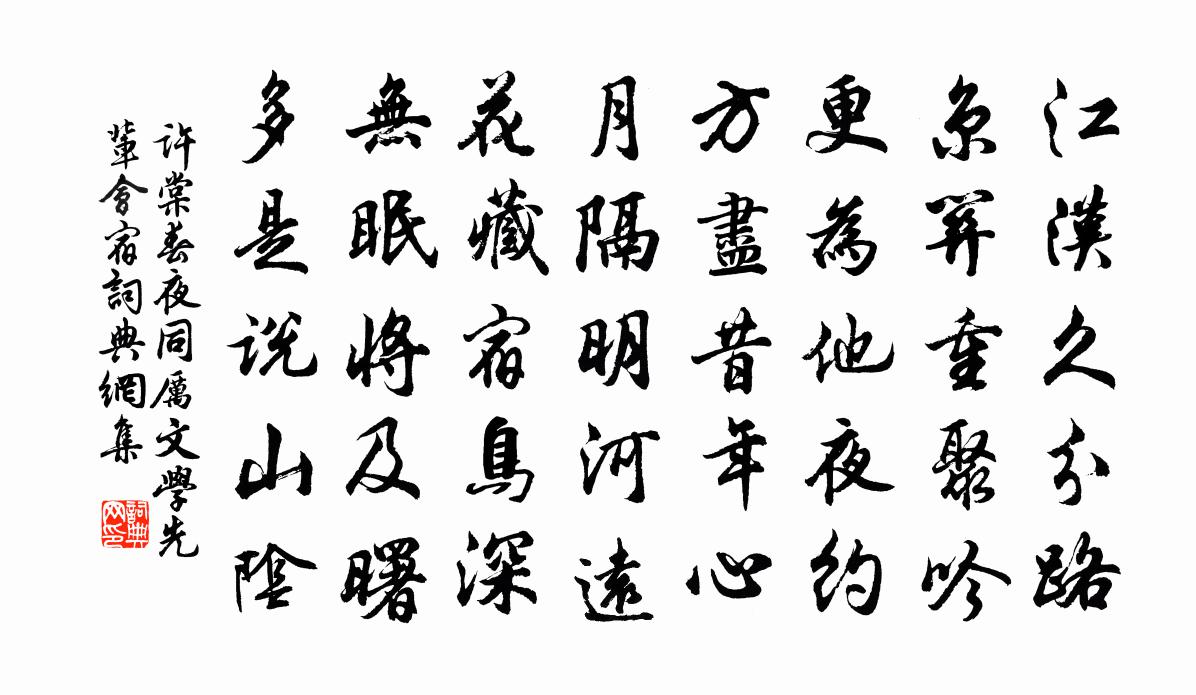 江漢久分路
京關重聚吟
更為他夜約
方盡昔年心
月隔明河遠
花藏宿鳥深
無眠將及曙
多是説山陰
許棠春夜同厲文學先
輩會宿詞典網集
詞典
网印